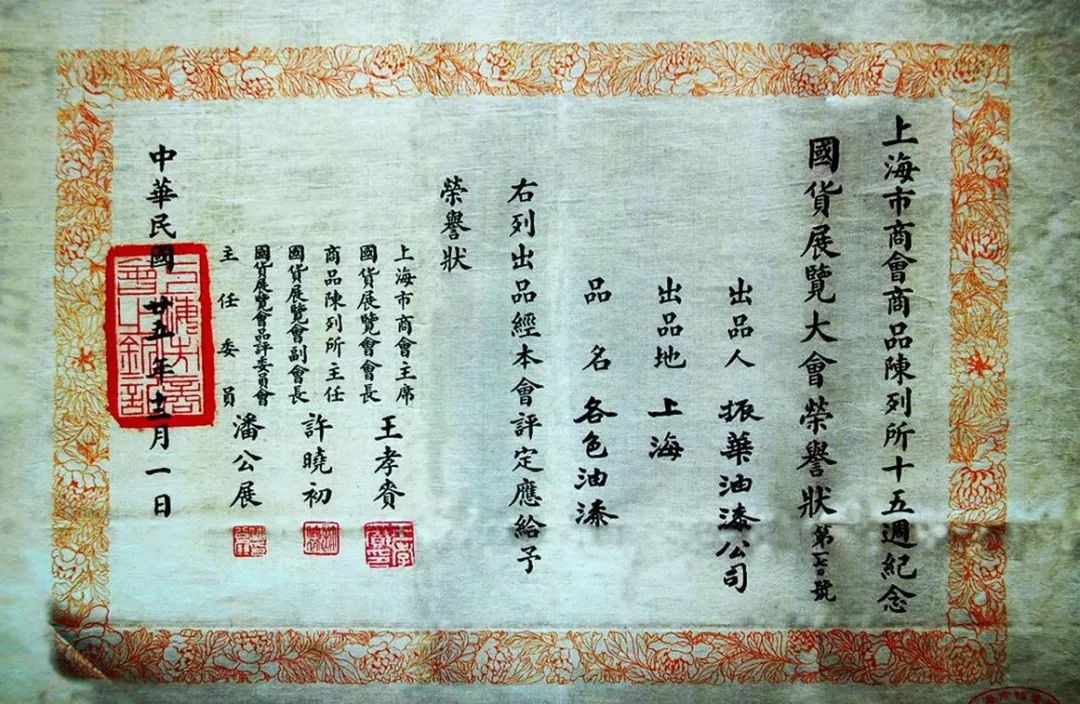 上海市商會商品陳列所十五週紀念
國貨展覽大會榮譽狀 第 號
出品人 振華油漆公司
出品地 上海
品名 各色油漆
右列出品經本會評定應給予
榮譽狀
上海市商會主席
國貨展覽會會長
王孝賚
商品陳列所主任
國貨展覽會副會長
許曉初
國貨展覽會品評委員會
主任委員
潘公展
中華民國廿五年十二月一日